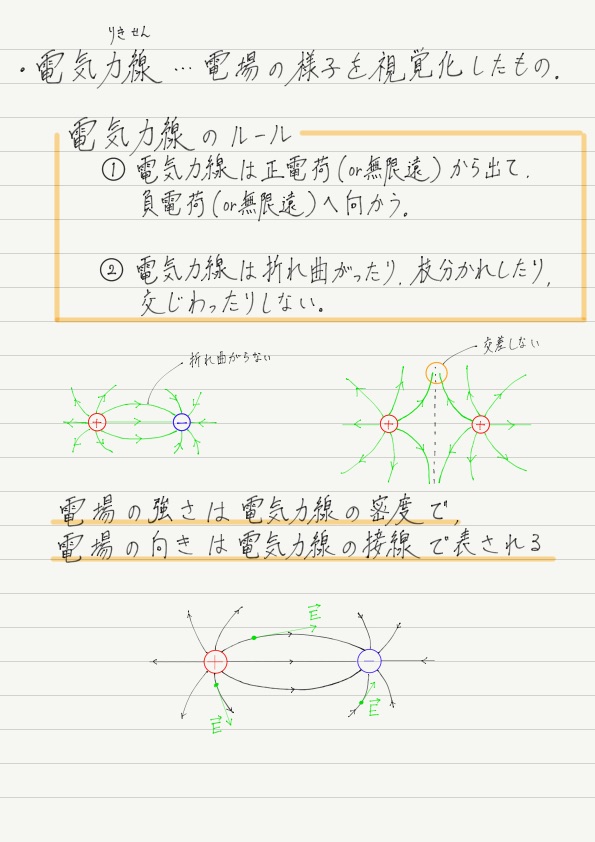 りきせん
・電気力線…電場の様子を視覚化したもの.
電気力線のルール
① 電気力線は正電荷(or無限遠)から出て.
負電荷(or無限遠)へ向かう。
② 電気力線は折れ曲がったり, 枝分かれしたり,
交じわったりしない。
折れ曲がらない
交差しない
+
-
+
+
電場の強さは電気力線の密度で,
電場の向きは電気力線の接線で表される
E
+
-
E
E